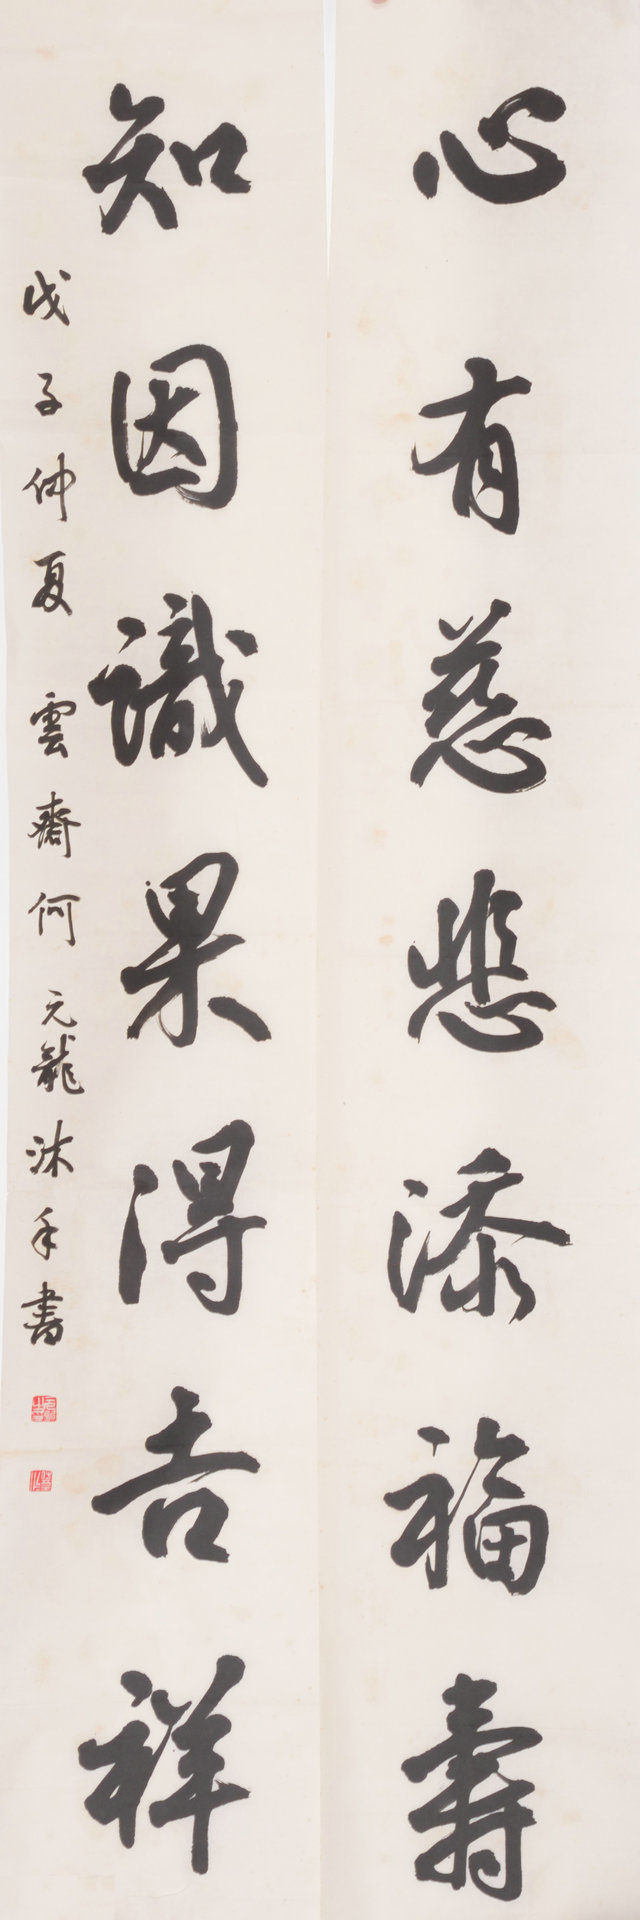 心有慈悲添福壽
知因識果得吉祥
戊子仲夏雲齋何元龍沐手書